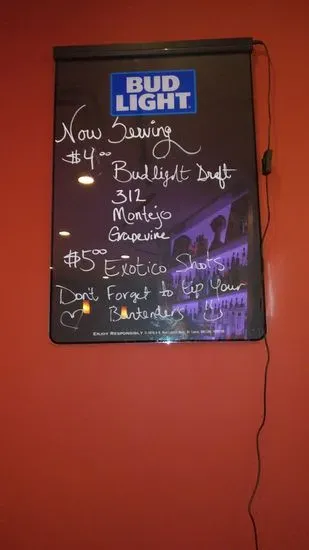 BUD
LIGHT
Now Serving
$4.00
Budlight Draft
312
Montejo
Grapevine
$5.00 Exotico Shots
Don't Forget to tip Your
Bartenders
ENJOY RESPONSIBLY